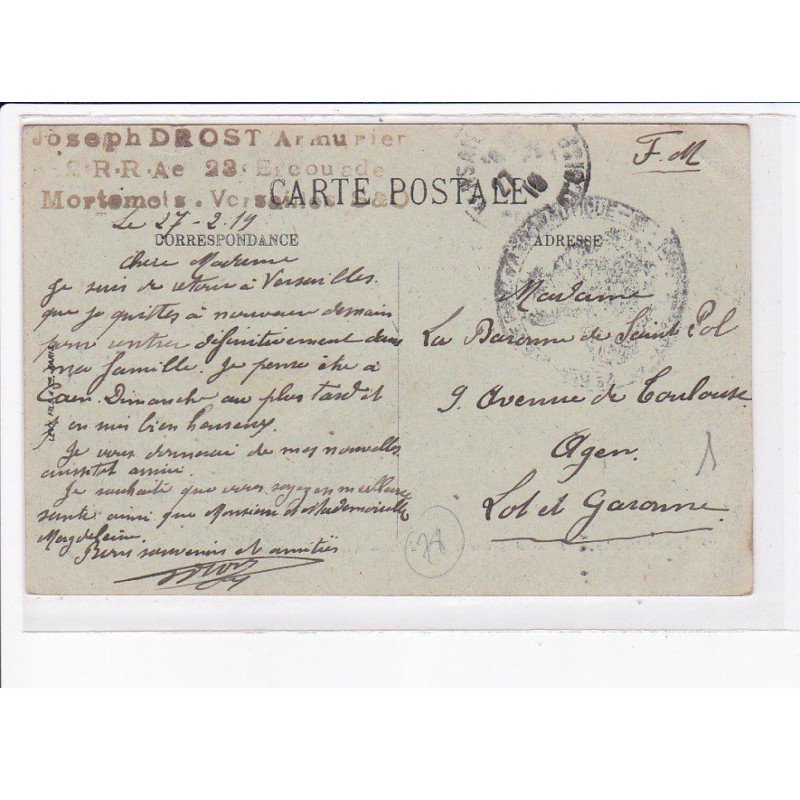 Joseph DROST Armurier
2 R.R.Ae 23 Escouade
Mortemets . Versailles S&O
CARTE POSTALE
F. M
Le 27-2-19
CORRESPONDANCE
ADRESSE
Chère Madame
Je suis de retour à Versailles
que je quittes à nouveau demain
pour rentrer définitivement dans
ma famille. Je pense être à
Caen Dimanche au plus tard et
j'en suis bien heureux.
Je vous donnerai de mes nouvelles
aussitot arrivé.
Je souhaite que vous soyez en meilleure
santé ainsi que Monsieur et Mademoiselle
Magdeleine.
Bons souvenirs et amitiés
Drost
Madame
La Baronne de Saint Pol
9. Avenue de Toulouse
Agen.
Lot et Garonne
78
1